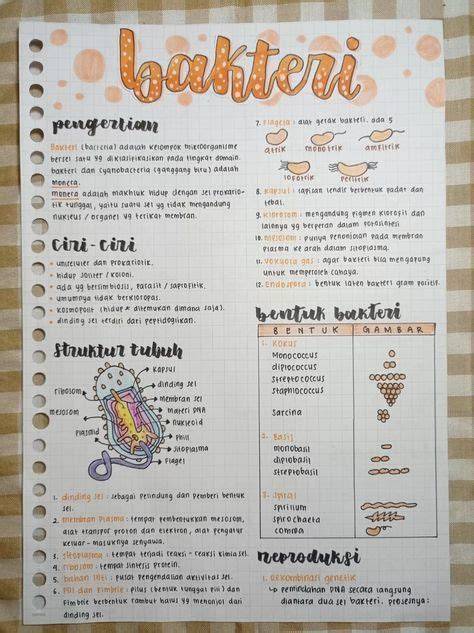 bakteri
pengertian
Bakteri (bacteria) adalah kelompok mikroorganisme
bersel satu yg diklasifikasikan pada tingkat domain.
bakteri dan cyanobacteria (ganggang biru) adalah
monera.
monera adalah makhluk hidup dengan sel prokario-
tik tunggal, yaitu suatu sel yg tidak mengandung
nukleus / organel yg terikat membran.
Ciri-ciri
• uniseluler dan prokariotik.
• hidup soliter / koloni.
• ada yg bersimbiosis, parasit / saprofitik.
• umumnya tidak berkloroplas.
• kosmopolit (hidup & ditemukan dimana saja).
• dinding sel terdiri dari peptidoglikan.
Struktur tubuh
kapsul
dinding sel
membran sel
materi DNA
nukleoid
Phili
sitoplasma
Flagel
ribosom
mesosom
plasmid
1. dinding sel : sebagai pelindung dan pemberi bentuk
sel.
2. membran plasma : tempat pembentukkan mesosom,
alat transpor proton dan elektron, alat pengatur
keluar-masuknya senyawa.
3. sitoplasma : tempat terjadi reaksi-reaksi kimia sel.
4. ribosom : tempat sintesis protein.
5. bahan inti : pusat pengendalian aktivitas sel.
6. Pili dan Fimbrie : Pilus (bentuk tunggal pili) dan
Fimbrie berbentuk rambut halus yg menonjol dari
dinding sel.
7. Flagela : alat gerak bakteri. ada 5
atrik monotrik amfitrik
lopotrik peritrik
8. kapsul : lapisan lendir berbentuk padat dan
tebal.
9. klorosom : mengandung pigmen klorofil dan
lainnya yg berperan dalam fotosintesis
10. mesosom : punya penonjolan pada membran
plasma ke arah dalam sitoplasma.
11. vakuola gas : agar bakteri bisa mengapung
untuk memperoleh cahaya.
12. Endospora : bentuk laten bakteri gram positif.
bentuk bakteri
BENTUK GAMBAR
1. KOKUS
Monococcus
diplococcus
streptococcus
staphilococcus
sarcina
2. Basil
monobasil
diplobasil
streptobasil
3. Spiral
spirilium
spirochaeta
comma
reproduksi
1. Rekombinasi genetik
↳ pemindahan DNA secara langsung
diantara dua sel bakteri. prosesnya: